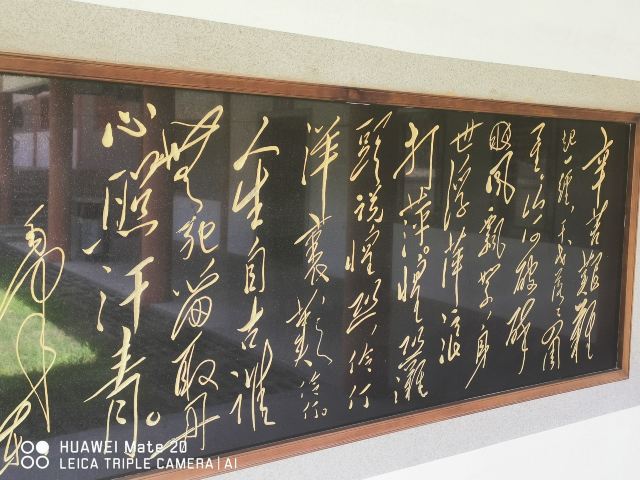 辛苦艱難
起一經,干戈落落四周
星。山河破碎
風飄絮,身
世浮萍浪
打萍。惶恐灘
頭說惶恐,伶仃
洋裏嘆伶仃。
人生自古誰
無死留取丹
心照汗青。
HUAWEI Mate 20
LEICA TRIPLE CAMERA | AI